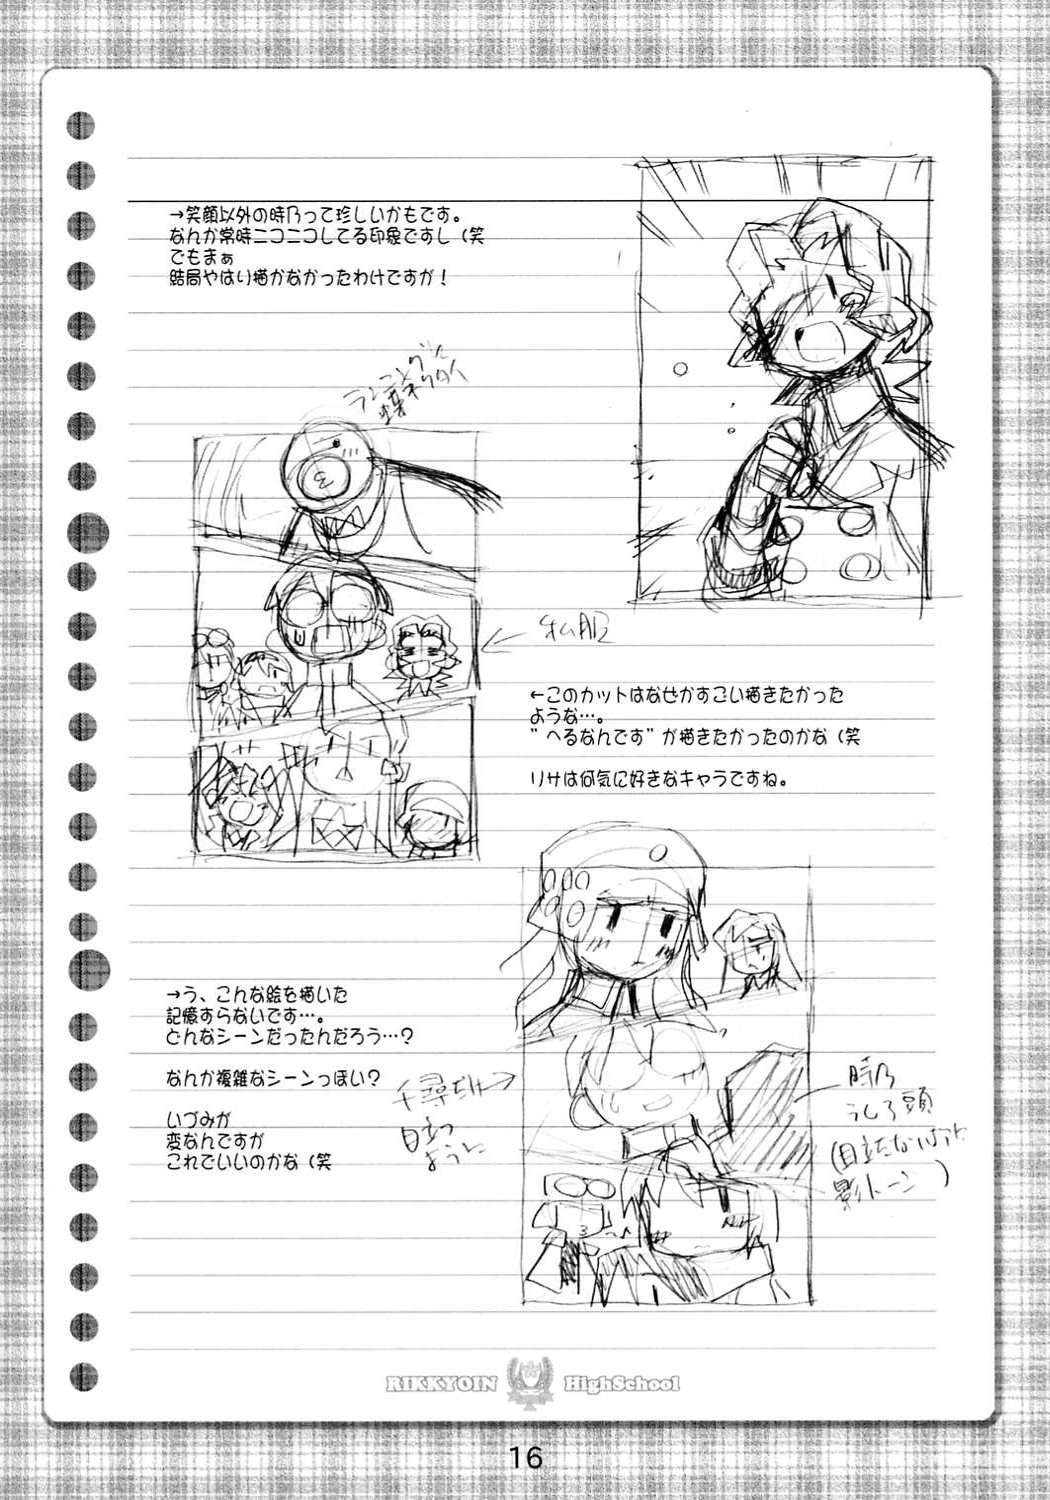 →笑顔以外の時乃って珍しいかもです。
なんか常時ニコニコしてる印象ですし（笑
でもまぁ
結局やはり描かなかったわけですが！
ランニングに
蝶ネクタイ
←私服
←このカットはなぜかすごい描きたかった
ような…。
"へるなんです"が描きたかったのかな（笑
リサは何気に好きなキャラですね。
→う、こんな絵を描いた
記憶すらないです…。
どんなシーンだったんだろう…？
なんか複雑なシーンっぽい？
いづみが
変なんですが
これでいいのかな（笑
千尋だけ→
目立つ
ように
時乃
うしろ頭
(目立たないように
影トーン)
RIKKYOIN HighSchool
16